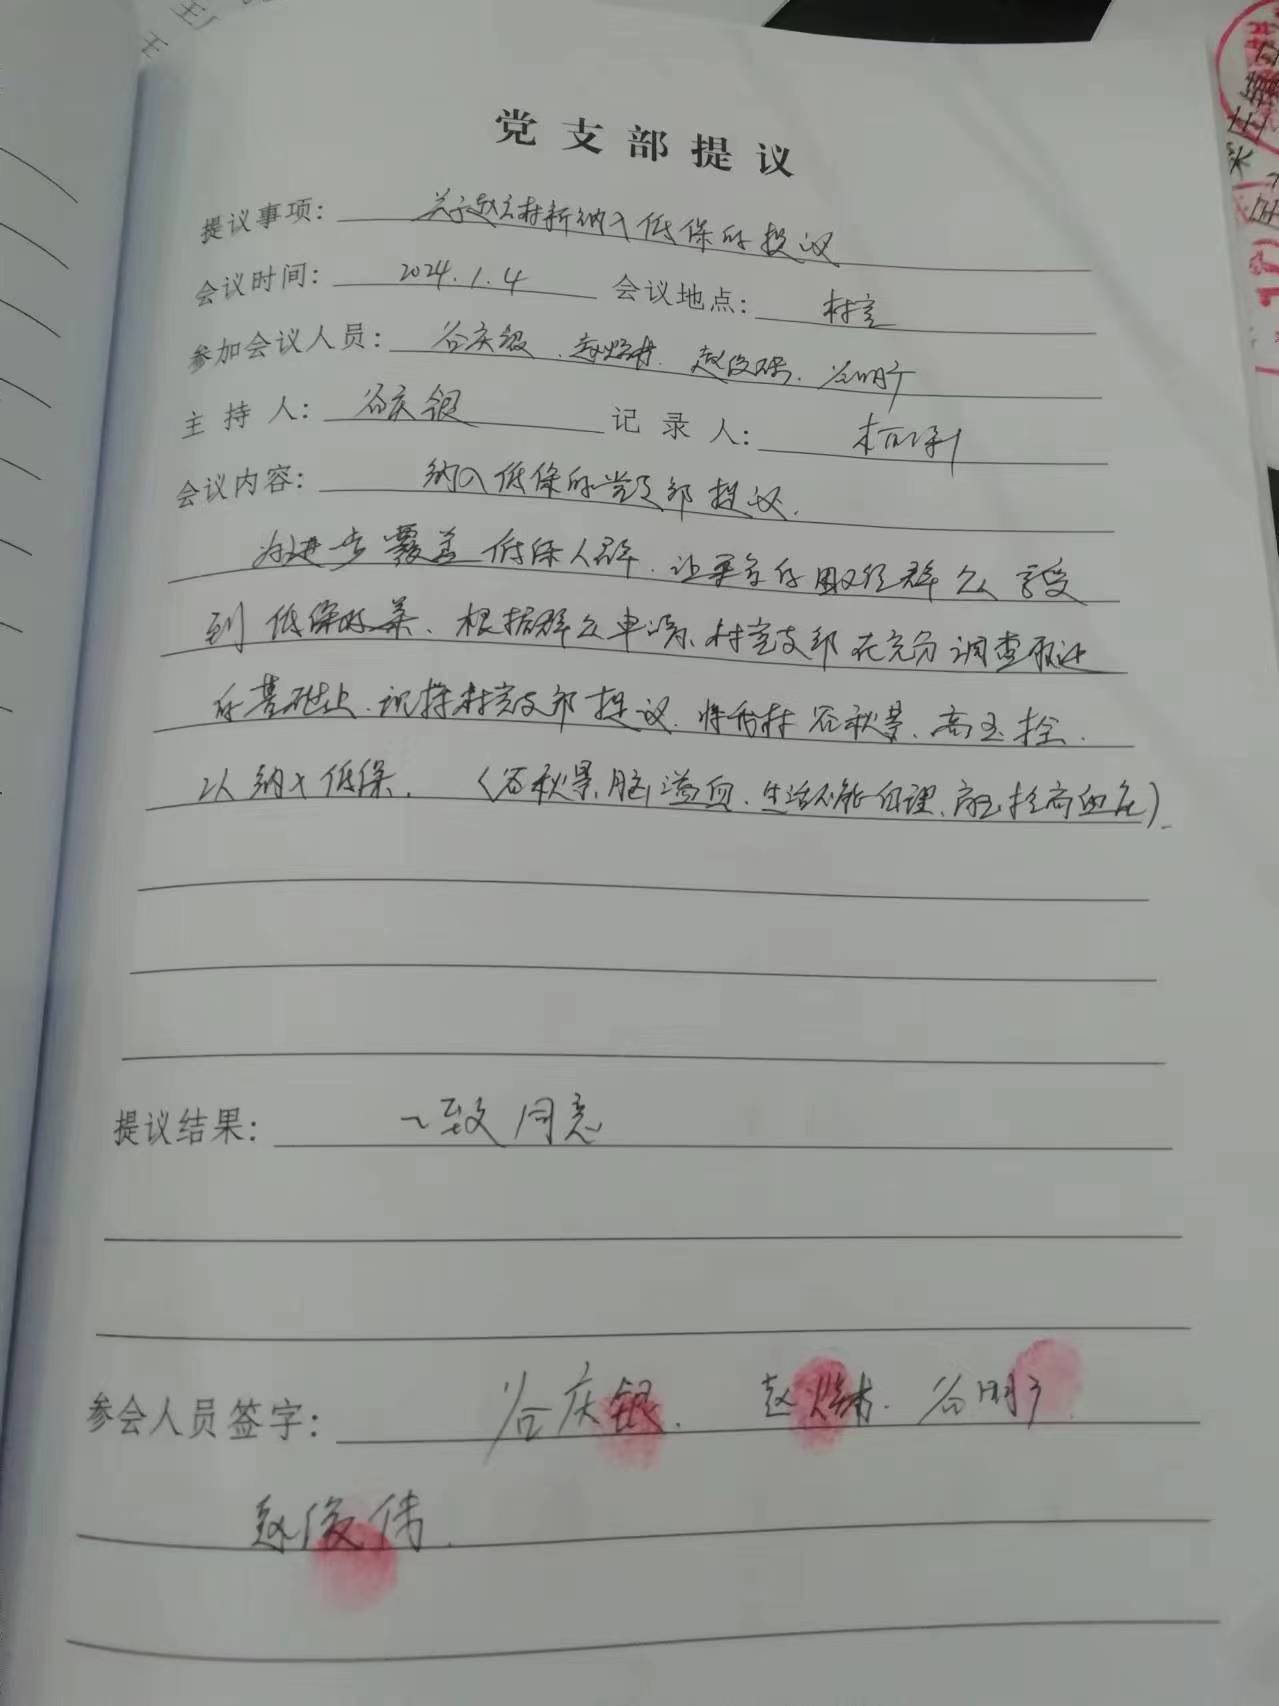 党支部提议
提议事项: 关于赵庄村新纳入低保的提议
会议时间: 2024.1.4 会议地点: 村室
参加会议人员: 谷庆银、赵 赵俊伟、谷明
主持人: 谷庆银 记录人:
会议内容: 纳入低保的党支部提议.
为进步覆盖低保人群.让更多的困难群众享受
到低保政策、根据群众申请、村党支部在充分调查
的基础上. 村党支部提议.将我村谷秋景、高玉拴.
以纳入低保. (谷秋景、脑溢血、生活不能自理、高玉拴高血压)
提议结果: 一致同意
参会人员签字: 谷庆银. 赵 谷明
赵俊伟.